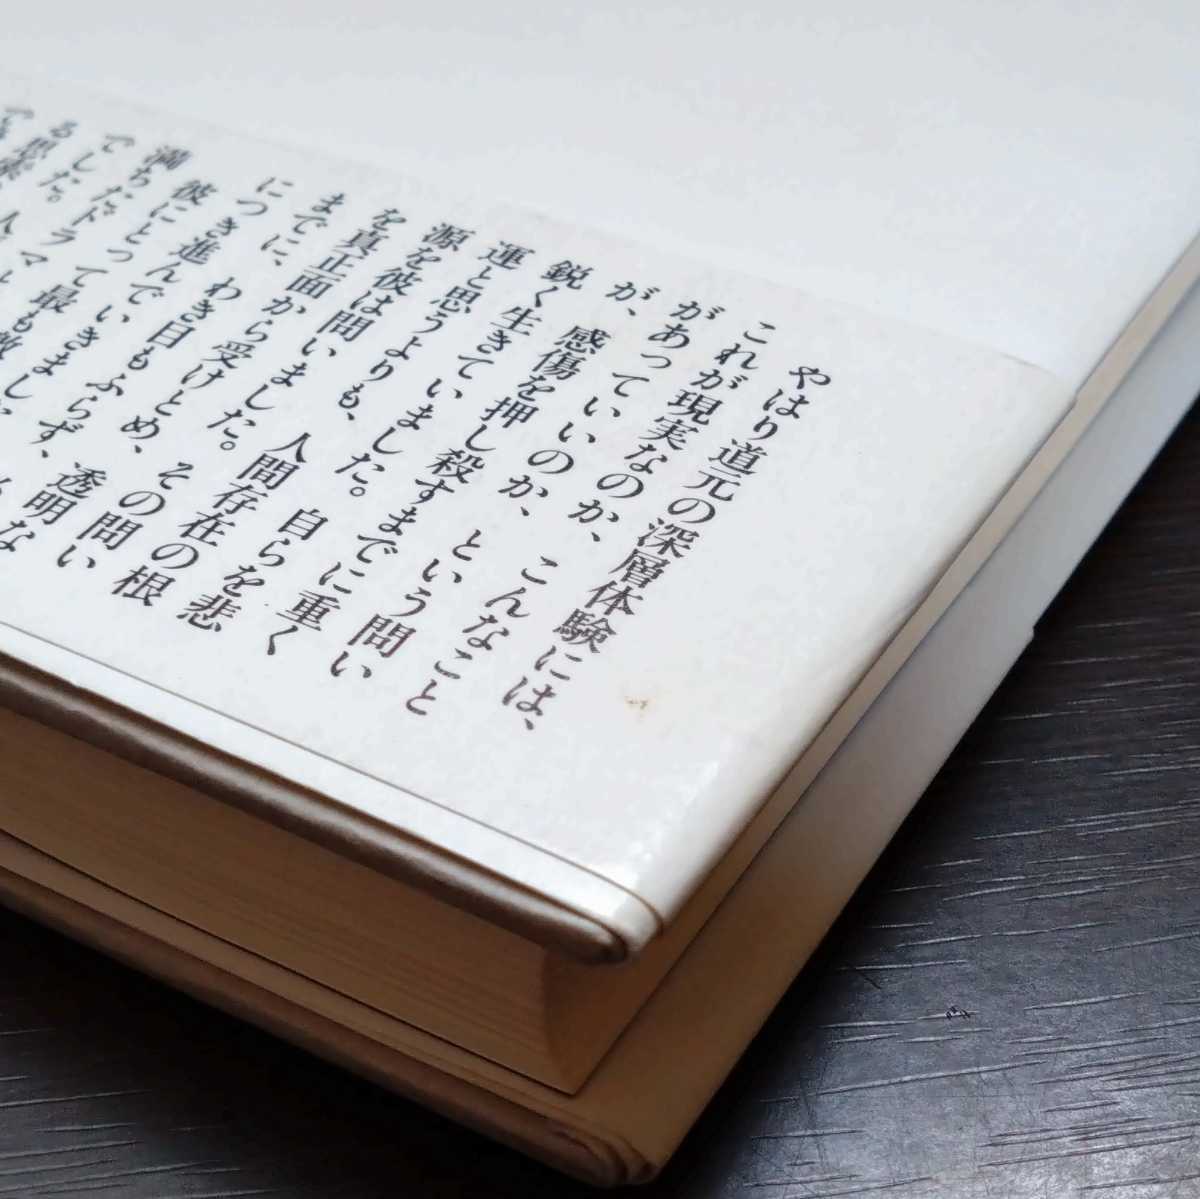 やはり道元の深層体験には、
これが現実なのか、こんなこと
があっていいのか、という問い
が、感傷を押し殺すまでに重く
鋭く生きていました。自らを悲
運と思うよりも、人間存在の根
源を彼は問いました。その問い
を真正面から受けとめ、透明な
までに、わき目もふらず、
につき進んでいきまし
彼にとって最も
満ちたドラマ
でした。
る思索